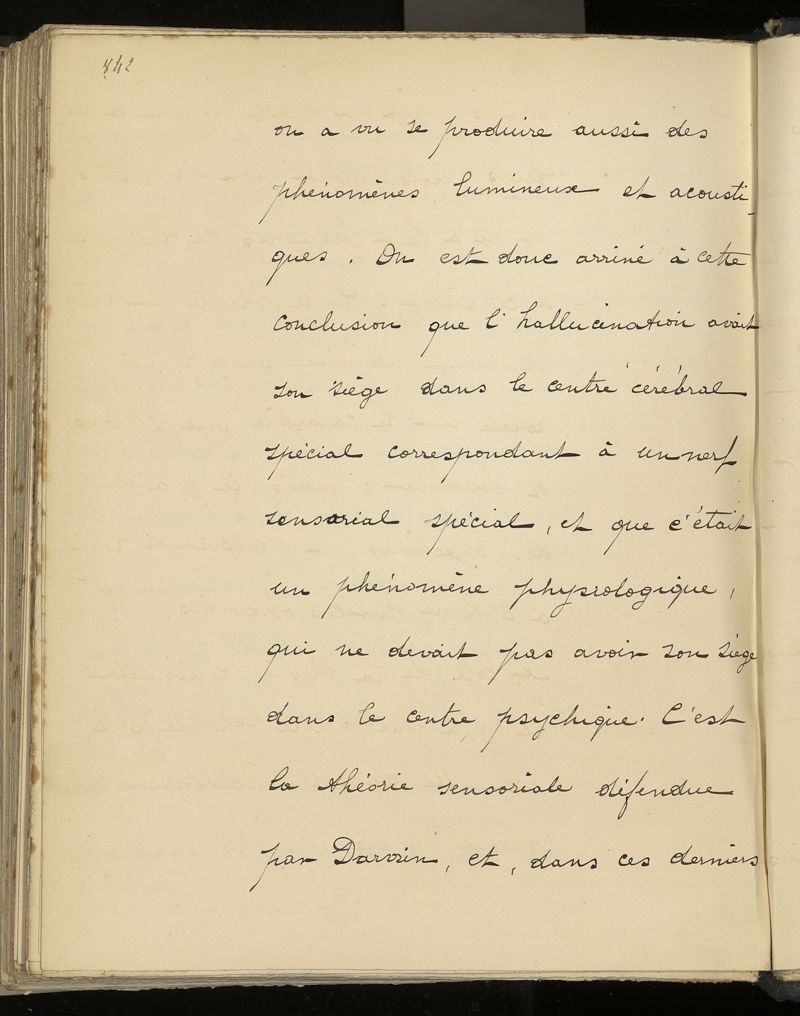 842
on a vu se produire aussi des
phénomènes lumineux et acousti-
ques. On est donc arrivé à cette
conclusion que l'hallucination avait
son siège dans le centre cérébral
spécial correspondant à un nerf
sensorial spécial, et que c'était
un phénomène physiologique,
qui ne devait pas avoir son siège
dans le centre psychique. C'est
la théorie sensoriale défendue
par Darwin, et, dans ces derniers